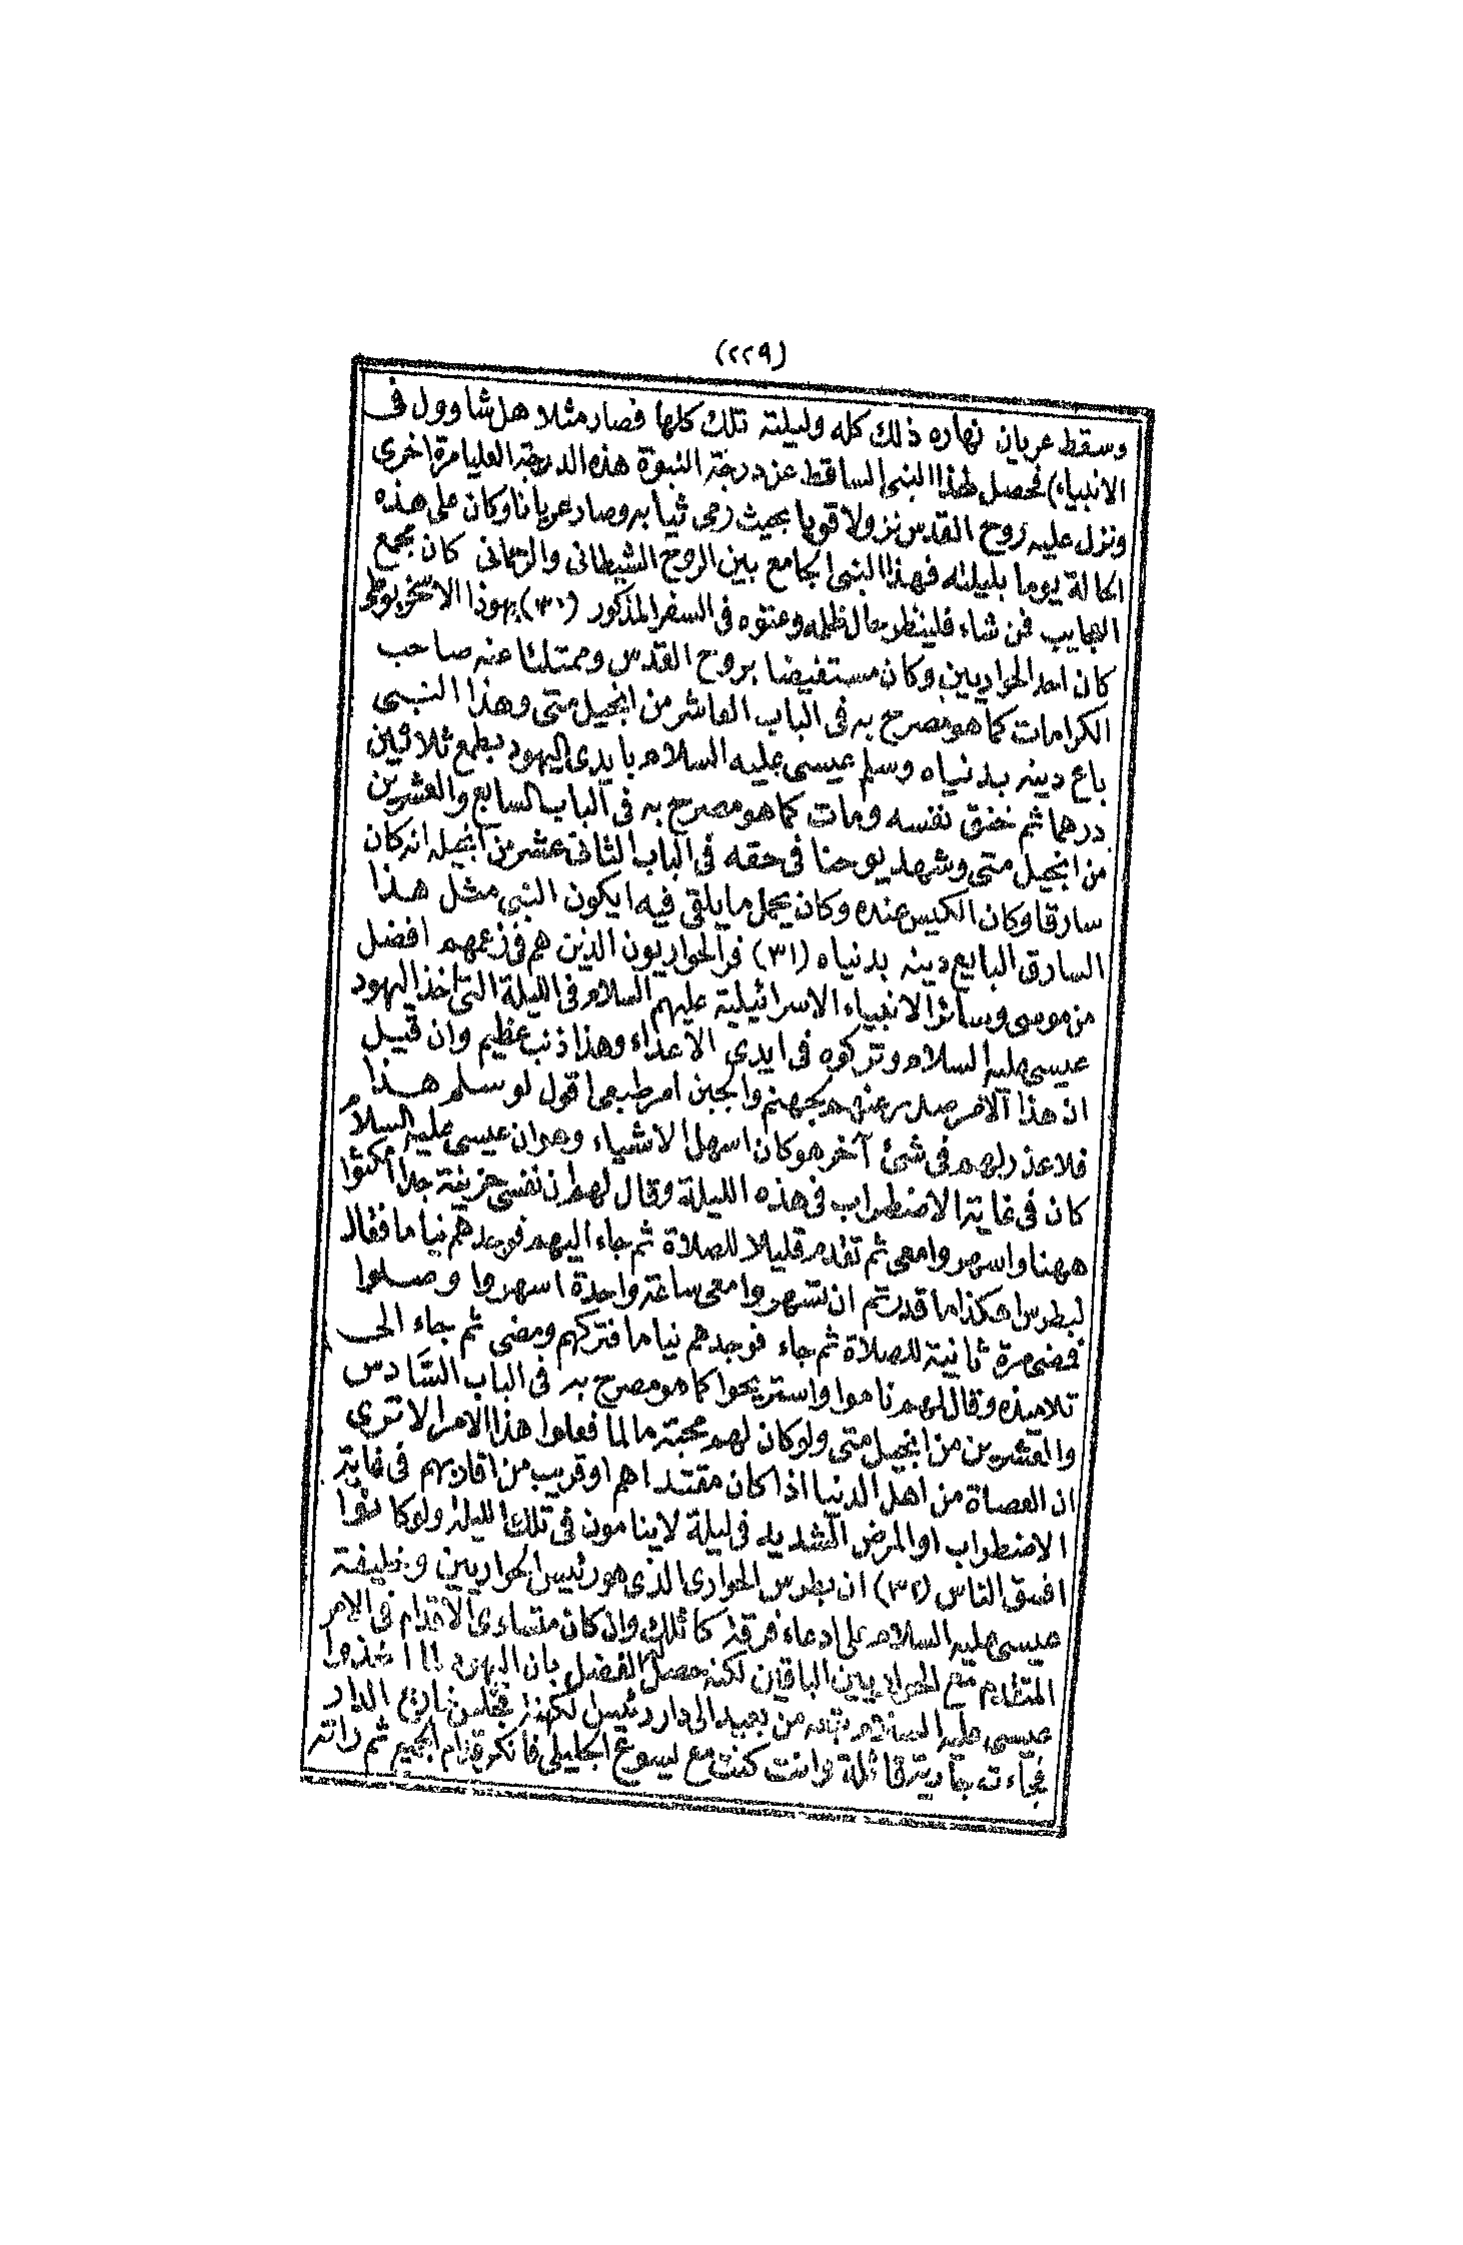 (٢٢٩)
وسقط عريان نهاره ذلك كله وليلته تلك كلها فصار مثلا هل شاوول فى
الانبياء) فحصل لهذا النبى الساقط عن درجة النبوة هذه الدرجة العليا مرة اخرى
ونزل عليه روح القدس نزولا قويا بحيث رمى ثيابه وصار عريانا وكان على هذه
الحالة يوما بليلته فهذا النبى الجامع بين الروح الشيطانى والرحمانى كان مجمع
العجايب فمن شاء فلينظر حال ظلمه وعتوه فى السفر المذكور (٣٠) يهوذا الاسخريوطى
كان احد الحواريين وكان مستفيضا بروح القدس وممتلئا عنه صاحب
الكرامات كما هو مصرح به فى الباب العاشر من انجيل متى وهذا النبى
باع دينه بدنياه وسلم عيسى عليه السلام بايدى اليهود بطمع ثلاثين
درهما ثم خنق نفسه ومات كما هو مصرح به فى الباب السابع والعشرين
من انجيل متى وشهد يوحنا فى حقه فى الباب الثانى عشر من انجيله انه كان
سارقا وكان الكيس عنده وكان يحمل ما يلقى فيه ايكون النبى مثل هذا
السارق البايع دينه بدنياه (٣١) فر الحواريون الذين هم فى زعمهم افضل
من موسى وسائر الانبياء الاسرائيلية عليهم السلام فى الليلة التى اخذ اليهود
عيسى عليه السلام وتركوه فى ايدى الاعداء وهذا ذنب عظيم وان قيل
ان هذا الامر صدر عنهم بجبنهم والجبن امر طبعى اقول لو سلم هذا
فلا عذر لهم فى شئ آخر هو كان اسهل الاشياء وهو ان عيسى عليه السلام
كان فى غاية الاضطراب فى هذه الليلة وقال لهم ان نفسى حزينة جدا امكثوا
ههنا واسهروا معى ثم تقدم قليلا للصلاة ثم جاء اليهم فوجدهم نياما فقال
لبطرس اهكذا ما قدرتم ان تسهروا معى ساعة واحدة اسهروا وصلوا
فمضى مرة ثانية للصلاة ثم جاء فوجدهم نياما فتركهم ومضى ثم جاء الى
تلاميذه وقال لهم ناموا واستريحوا كما هو مصرح به فى الباب السادس
والعشرين من انجيل متى ولو كان لهم محبة ما لما فعلوا هذا الامر الا ترى
ان العصاة من اهل الدنيا اذا كان مقتداهم او قريب من اقاربهم فى غاية
الاضطراب او المرض الشديد فى ليلة لا ينامون فى تلك الليلة ولو كانوا
افسق الناس (٣٢) ان بطرس الحوارى الذى هو رئيس الحواريين وخليفة
عيسى عليه السلام على ادعاء فرقة كاثلك وان كان متساوى الاقدام فى الامر
المتقدم مع الحواريين الباقين لكنه حصل له الفضل بان اليهود لما اخذوا
عيسى عليه السلام تبعه من بعيد الى دار رئيس الكهنة فجلس خارج الدار
فجاءته جارية قائلة وانت كنت مع يسوع الجليلى فانكر قدام الجميع ثم راته